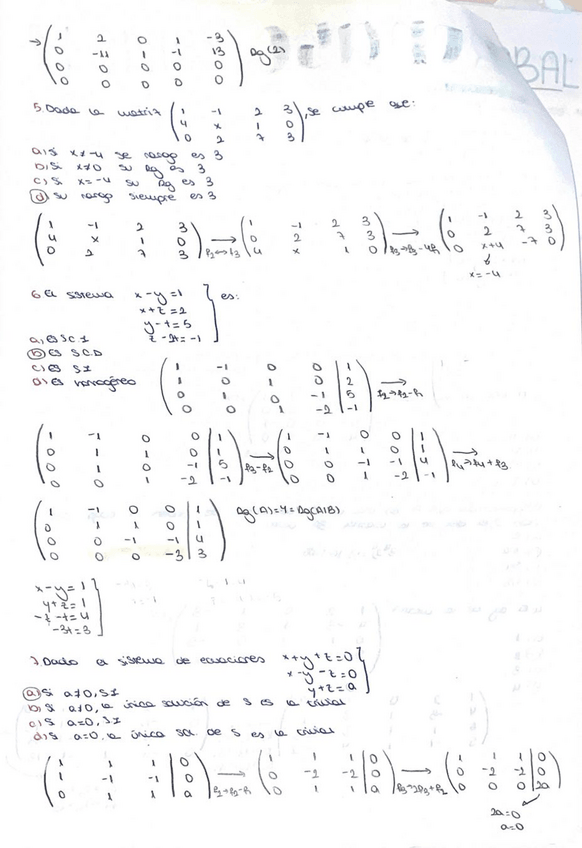 → ( 1 2 0 1 -3
0 -11 1 -1 13
0 0 0 0 0
0 0 0 0 0 ) Rg(2)
BAL
5. Dada la matriz ( 1 -1 2 3
4 x 1 0
0 2 7 3 ), se cumple que:
a) Si x≠-4 su rango es 3
b) Si x≠0 su Rg es 3
c) Si x=-4 su Rg es 3
d) Su rango siempre es 3
( 1 -1 2 3
4 x 1 0
0 2 7 3 ) f2→f3 ( 1 -1 2 3
0 2 7 3
4 x 1 0 ) f3→f3-4f1 ( 1 -1 2 3
0 2 7 3
0 x+4 -7 0 )
x=-4
6. El sistema x-y=1
x+z=2
y-t=5
z-2t=-1 } es:
a) es SCI
b) es SCD
c) es SI
d) es homogéneo
( 1 -1 0 0 | 1
1 0 1 0 | 2
0 1 0 -1 | 5
0 0 1 -2 | -1 ) f2→f2-f1
( 1 -1 0 0 | 1
0 1 1 0 | 1
0 1 0 -1 | 5
0 0 1 -2 | -1 ) f3-f2 ( 1 -1 0 0 | 1
0 1 1 0 | 1
0 0 -1 -1 | 4
0 0 1 -2 | -1 ) f4→f4+f3
( 1 -1 0 0 | 1
0 1 1 0 | 1
0 0 -1 -1 | 4
0 0 0 -3 | 3 ) Rg(A)=4=Rg(A|B)
x-y=1
y+z=1
-z-t=4
-3t=3 }
7. Dado el sistema de ecuaciones x+y+z=0
x-y-z=0
y+z=a }
a) Si a≠0, SI
b) Si a≠0, la única solución de S es la trivial
c) Si a=0, SI
d) Si a=0, la única sol de S es la trivial
( 1 1 1 | 0
1 -1 -1 | 0
0 1 1 | a ) f2→f2-f1 ( 1 1 1 | 0
0 -2 -2 | 0
0 1 1 | a ) f3→2f3+f2 ( 1 1 1 | 0
0 -2 -2 | 0
0 0 0 | 2a )
2a=0
a=0